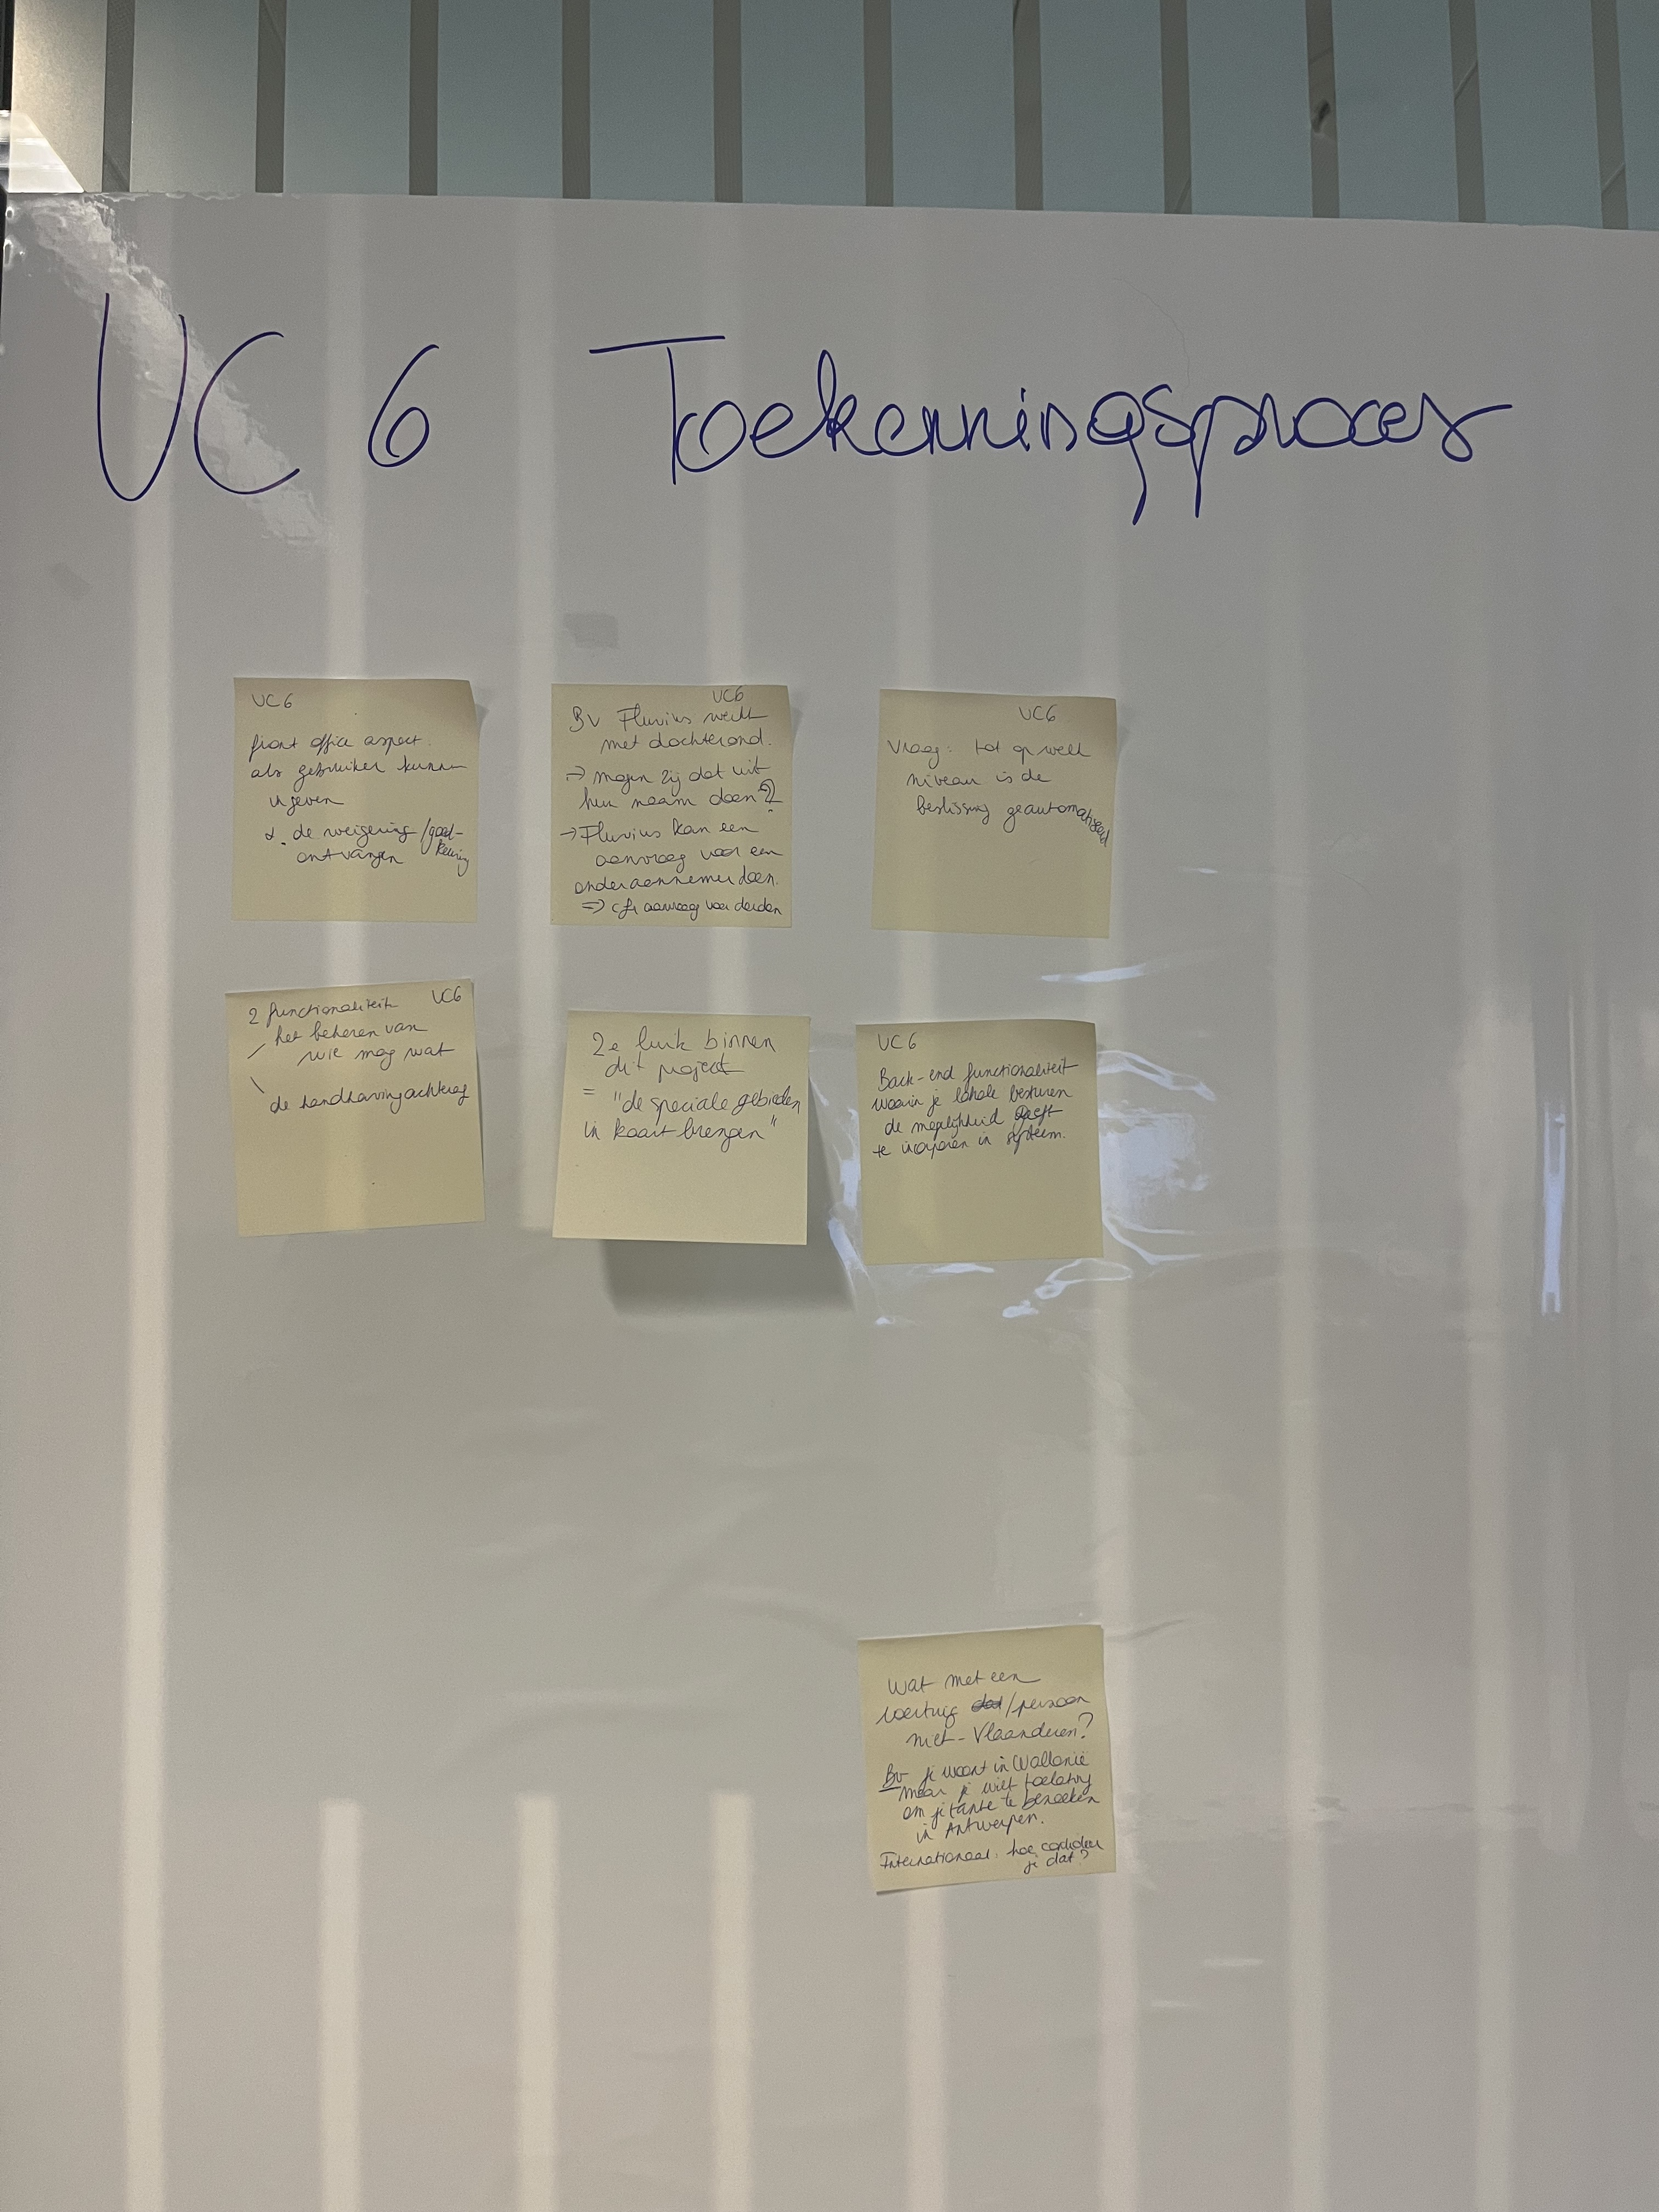 UC 6 Toekenningsproces
UC6
front office aspect.
als gebruiker kunnen
ingeven
&. de weigering/goed-
keuring
ontvangen
UC6
BV Fluvius werkt
met dochterond.
-> mogen zij dat uit
hun naam doen?
-> Fluvius kan een
aanvraag voor een
onderaannemer doen.
=> cfr aanvraag voor derden
UC6
Vraag: tot op welk
niveau is de
beslissing geautomatiseerd
2 functionaliteit UC6
het beheren van
wie mag wat
de handhaving achteraf
2e luik binnen
dit project
= "de speciale gebieden
in kaart brengen"
UC6
Back-end functionaliteit
waarin je lokale besturen
de mogelijkheid geeft
te in systeem.
Wat met een
voertuig /persoon
niet-Vlaanderen?
Bv je woont in Wallonië
maar je wilt toelating
om je tante te bezoeken
in Antwerpen.
Internationaal: hoe
je dat?